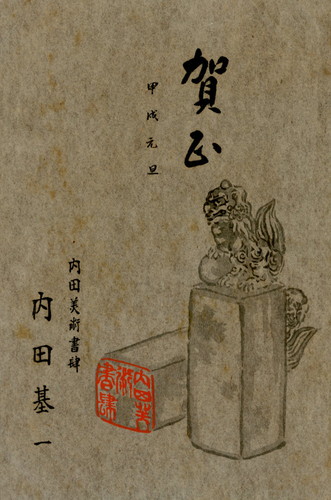 賀正
甲戌元旦
内田美術書肆
内田基一
内田美
術
書肆